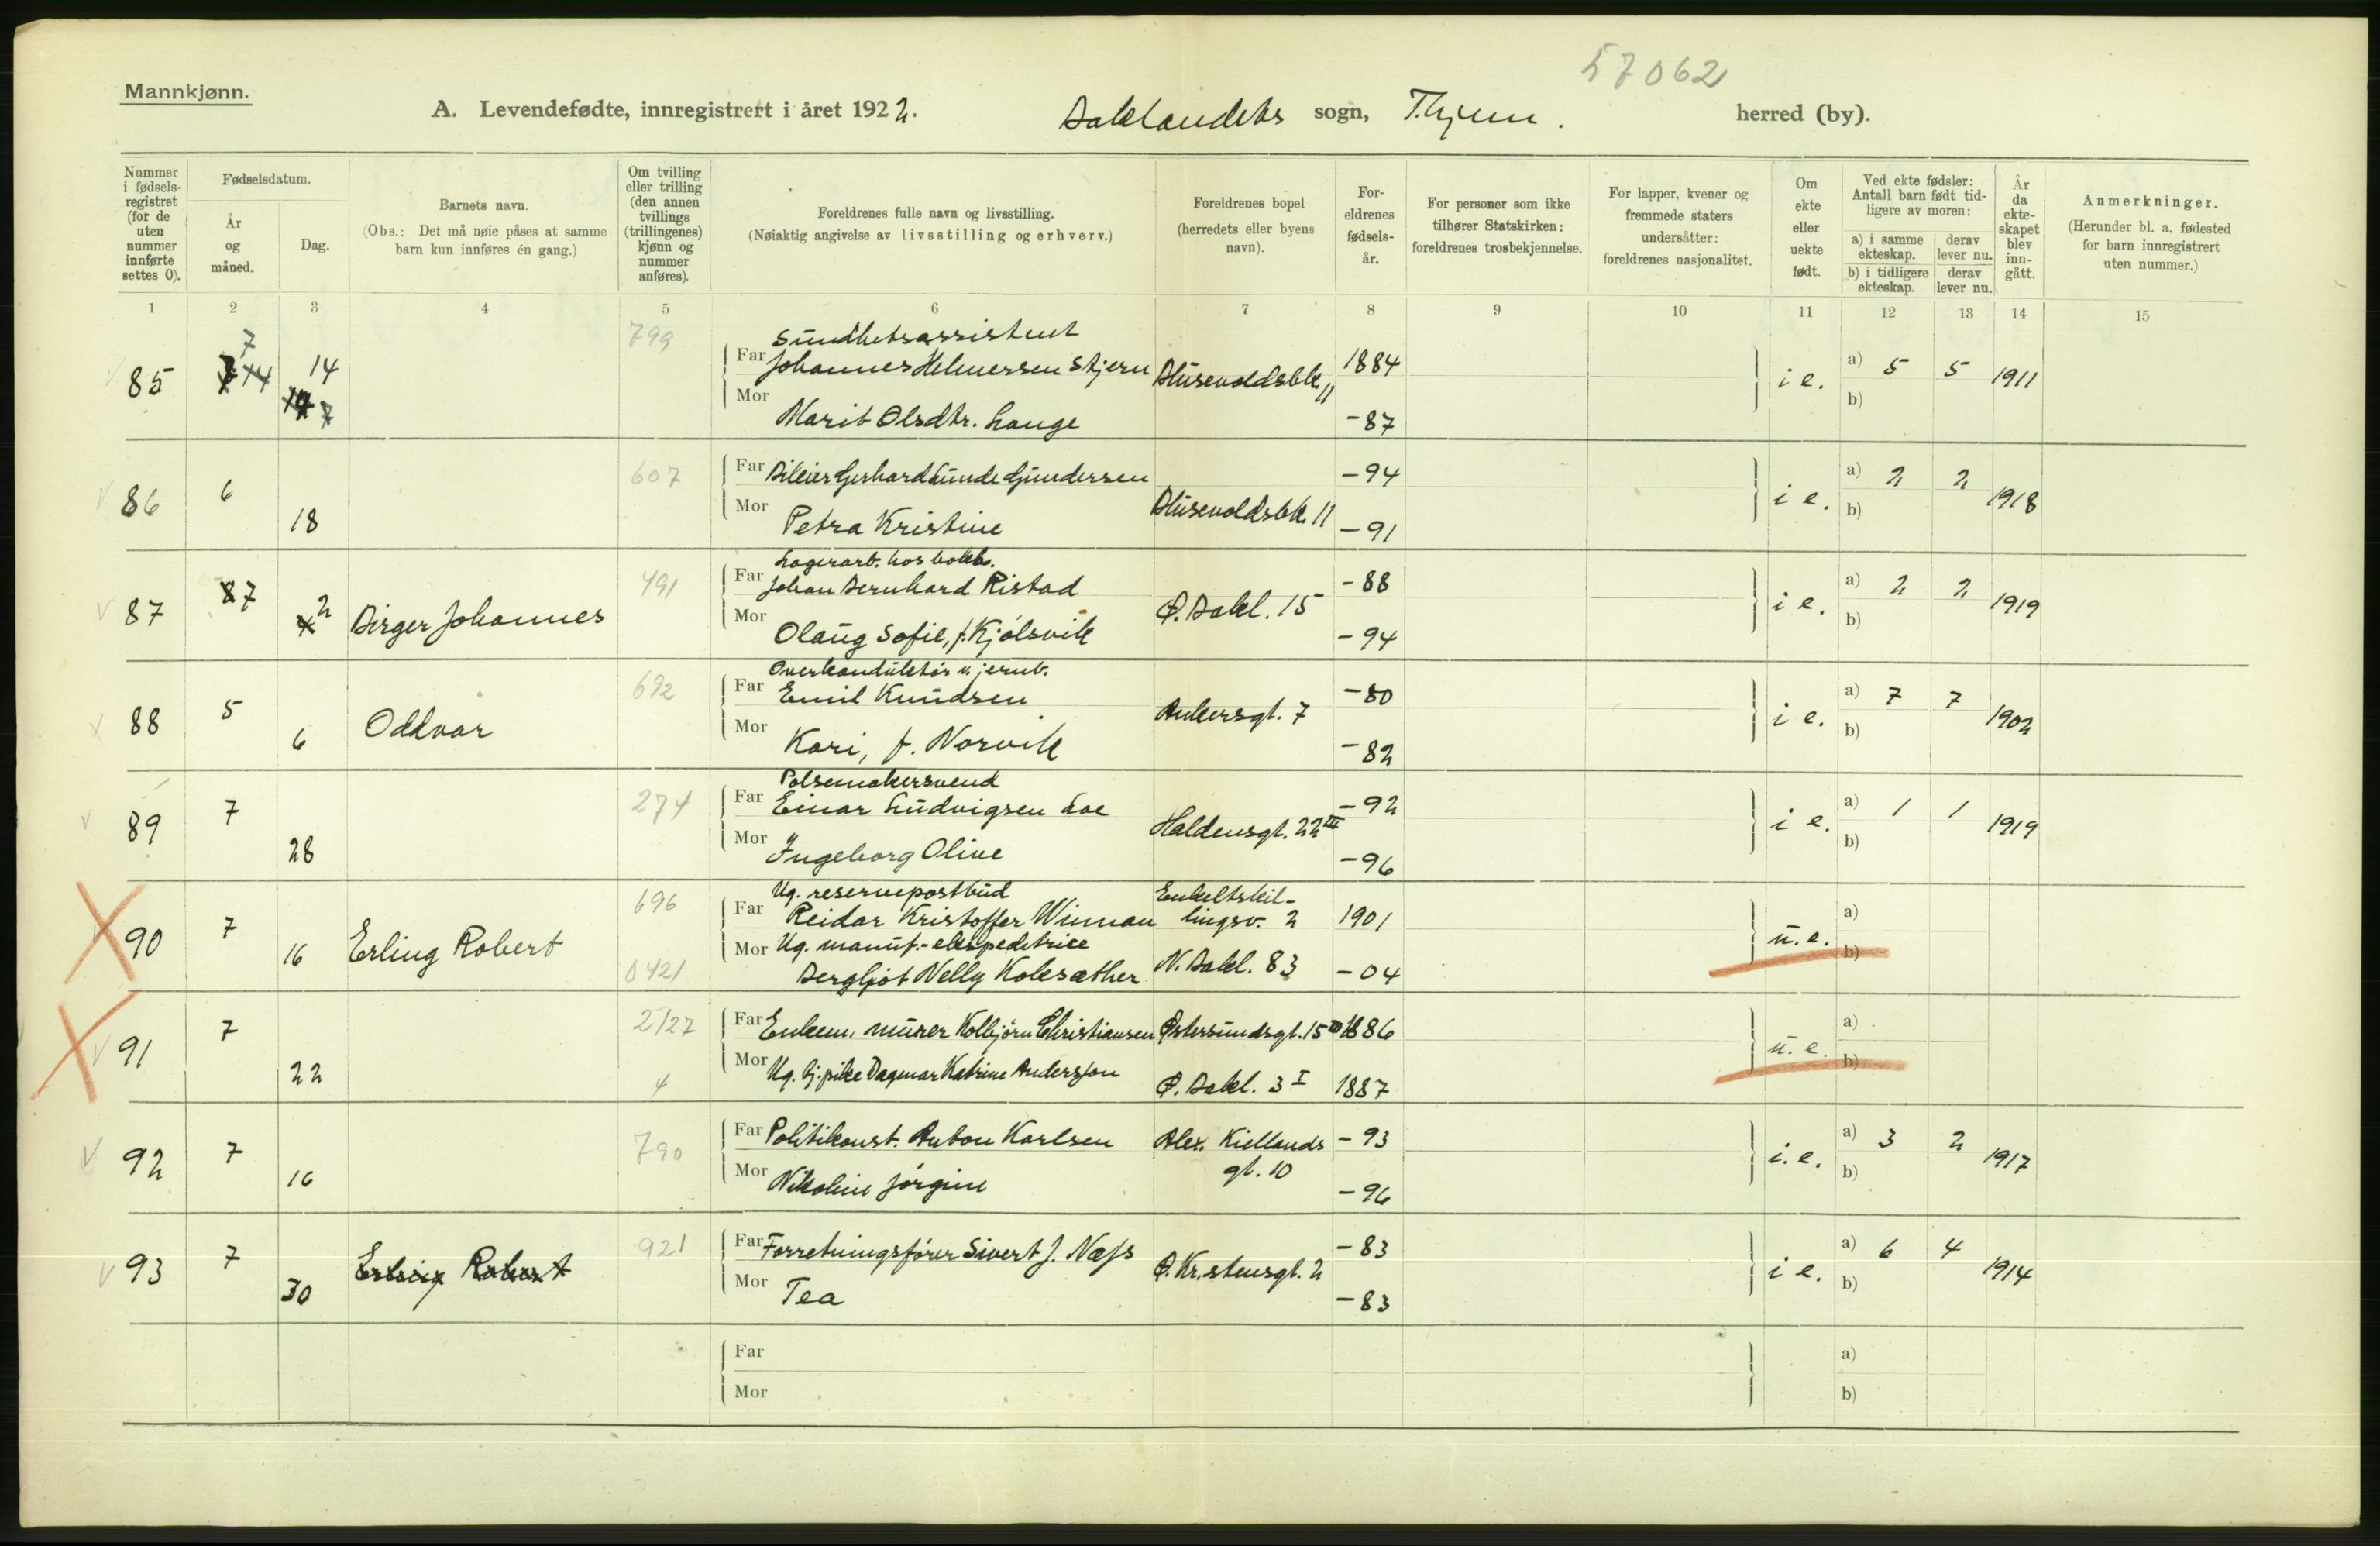 57062
Mannkjønn.
A. Levendefødte, innregistrert i året 1922. Baklandets sogn, T.hjem. herred (by).
Nummer i fødsels- registret (for de uten nummer innførte settes 0).
Fødselsdatum.
År og måned.
Dag.
Barnets navn.
(Obs.: Det må nøie påses at samme barn kun innføres én gang.)
Om tvilling eller trilling (den annen tvillings (trillingenes) kjønn og nummer anføres).
Foreldrenes fulle navn og livsstilling.
(Nøiaktig angivelse av livsstilling og erhverv.)
Foreldrenes bopel (herredets eller byens navn).
For- eldrenes fødsels- år.
For personer som ikke tilhører Statskirken: foreldrenes trosbekjennelse.
For lapper, kvener og fremmede staters undersåtter: foreldrenes nasjonalitet.
Om ekte eller uekte født.
Ved ekte fødsler: Antall barn født tid- ligere av moren:
a) i samme ekteskap. derav lever nu.
b) i tidligere ekteskap. derav lever nu.
År da ekte- skapet blev inn- gått.
Anmerkninger.
(Herunder bl. a. fødested for barn innregistrert uten nummer.)
1 2 3 4 5 6 7 8 9 10 11 12 13 14 15
85 7 14 799
Sundhetsassistent
Far Johannes Helmersen Stjern Dlusevoldsbk. 11 1884 i e. a) 5 5 1911
Mor Marit Olsdtr. Lauge -87 b)
86 6 18 607
Far Bileier Gerhard Lunde Gundersen Dlusevoldsbk. 11 -94 i e. a) 2 2 1918
Mor Petra Kristine -91 b)
87 7 2 Birger Johannes 491
Lagerarb. hos bokb.
Far Johan Bernhard Ristad Ø. Bakl. 15 -88 i e. a) 2 2 1919
Mor Olaug Sofie, f. Kjølsvik -94 b)
88 5 6 Oddvar 692
Overkonduktør v. jernb.
Far Emil Knudsen Ankersgt. 7 -80 i e. a) 7 7 1902
Mor Kari, f. Norvik -82 b)
89 7 28 274
Pølsemakersvend
Far Einar Ludvigsen Loe Haldensgt. 22 III -92 i e. a) 1 1 1919
Mor Ingeborg Olive -96 b)
90 7 16 Erling Robert 696
Ug. reservepostbud
Far Reidar Kristoffer Winnan Enkeltskil- lingsv. 2 1901 u. e. a)
Mor Ug. manuf.-ekspeditrice
Bergljot Nelly Kolesæther N. Bakl. 83 -04 b)
0421
91 7 22 2127
Far Enkem. murer Kolbjørn Christiansen Østersundsgt. 15 III 1886 u. e. a)
Mor Ug. tj.pike Dagmar Katrine Andersson Ø. Bakl. 3 I 1887 b)
4
92 7 16 790
Far Politikonst. Anton Karlsen Alex. Kiellands gt. 10 -93 i. e. a) 3 2 1917
Mor Nikoline Jørgine -96 b)
93 7 30 Erling Robert 921
Far Forretningsfører Sivert J. Næss Ø. Kristensgt. 2 -83 i e. a) 6 4 1914
Mor Tea -83 b)
Far a)
Mor b)